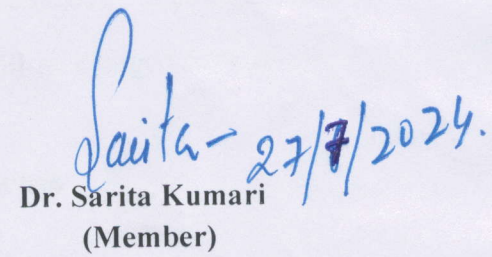 Sarita- 27/7/2024.
Dr. Sarita Kumari
(Member)